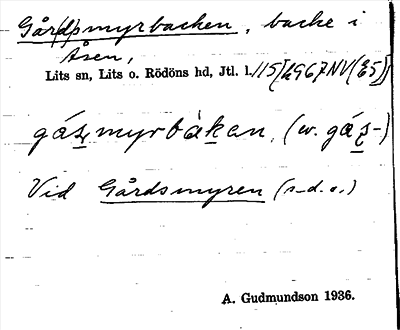 Går(d)smyrbacken, backe i
Åsen,
Lits sn, Lits o. Rödöns hd, Jtl. l. 115 [2967NV(E5)]
gás̱myrbàḵan, (w. gás̱-)
Vid Gårdsmyren (s.d.o.)
A. Gudmundson 1936.